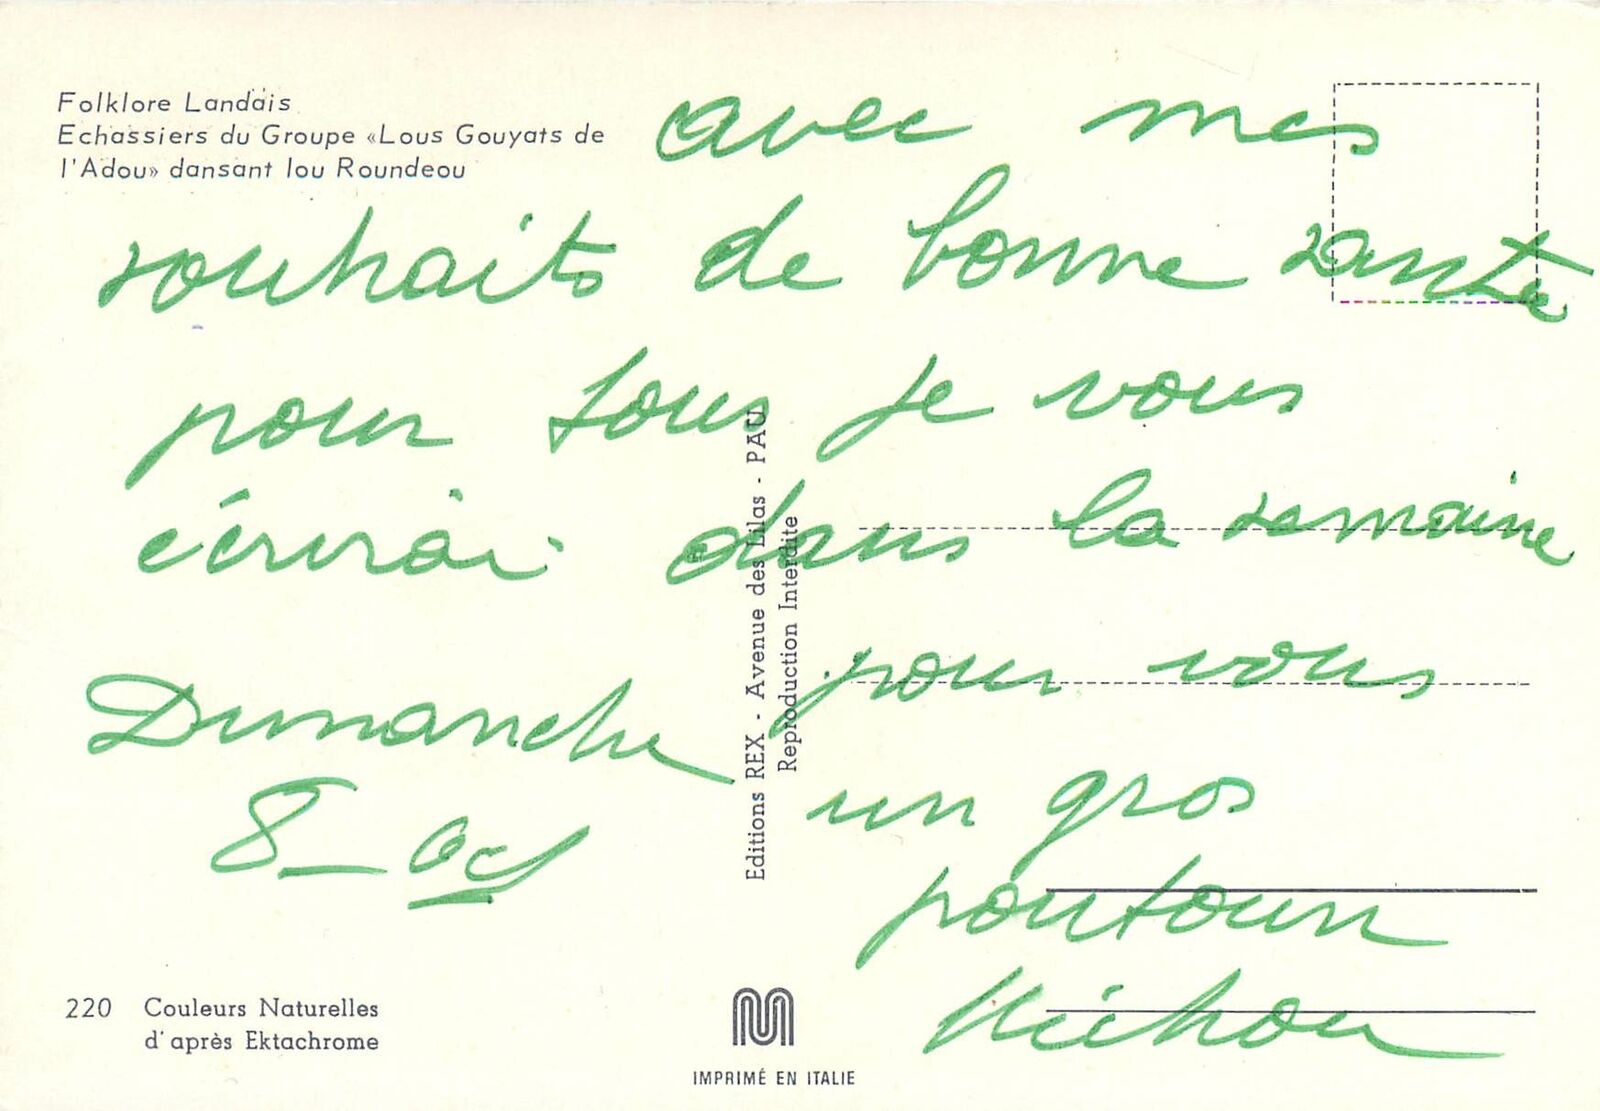 Folklore Landais
Echassiers du Groupe «Lous Gouyats de
l'Adou» dansant lou Roundeou
avec mes
souhaits de bonne santé
pour tous je vous
écrirai dans la semaine
pour vous
Dimanche
un gros
8 - oct
poutoun
Michou
Editions REX - Avenue des Lilas - PAU
Reproduction Interdite
220 Couleurs Naturelles
d'après Ektachrome
IMPRIMÉ EN ITALIE